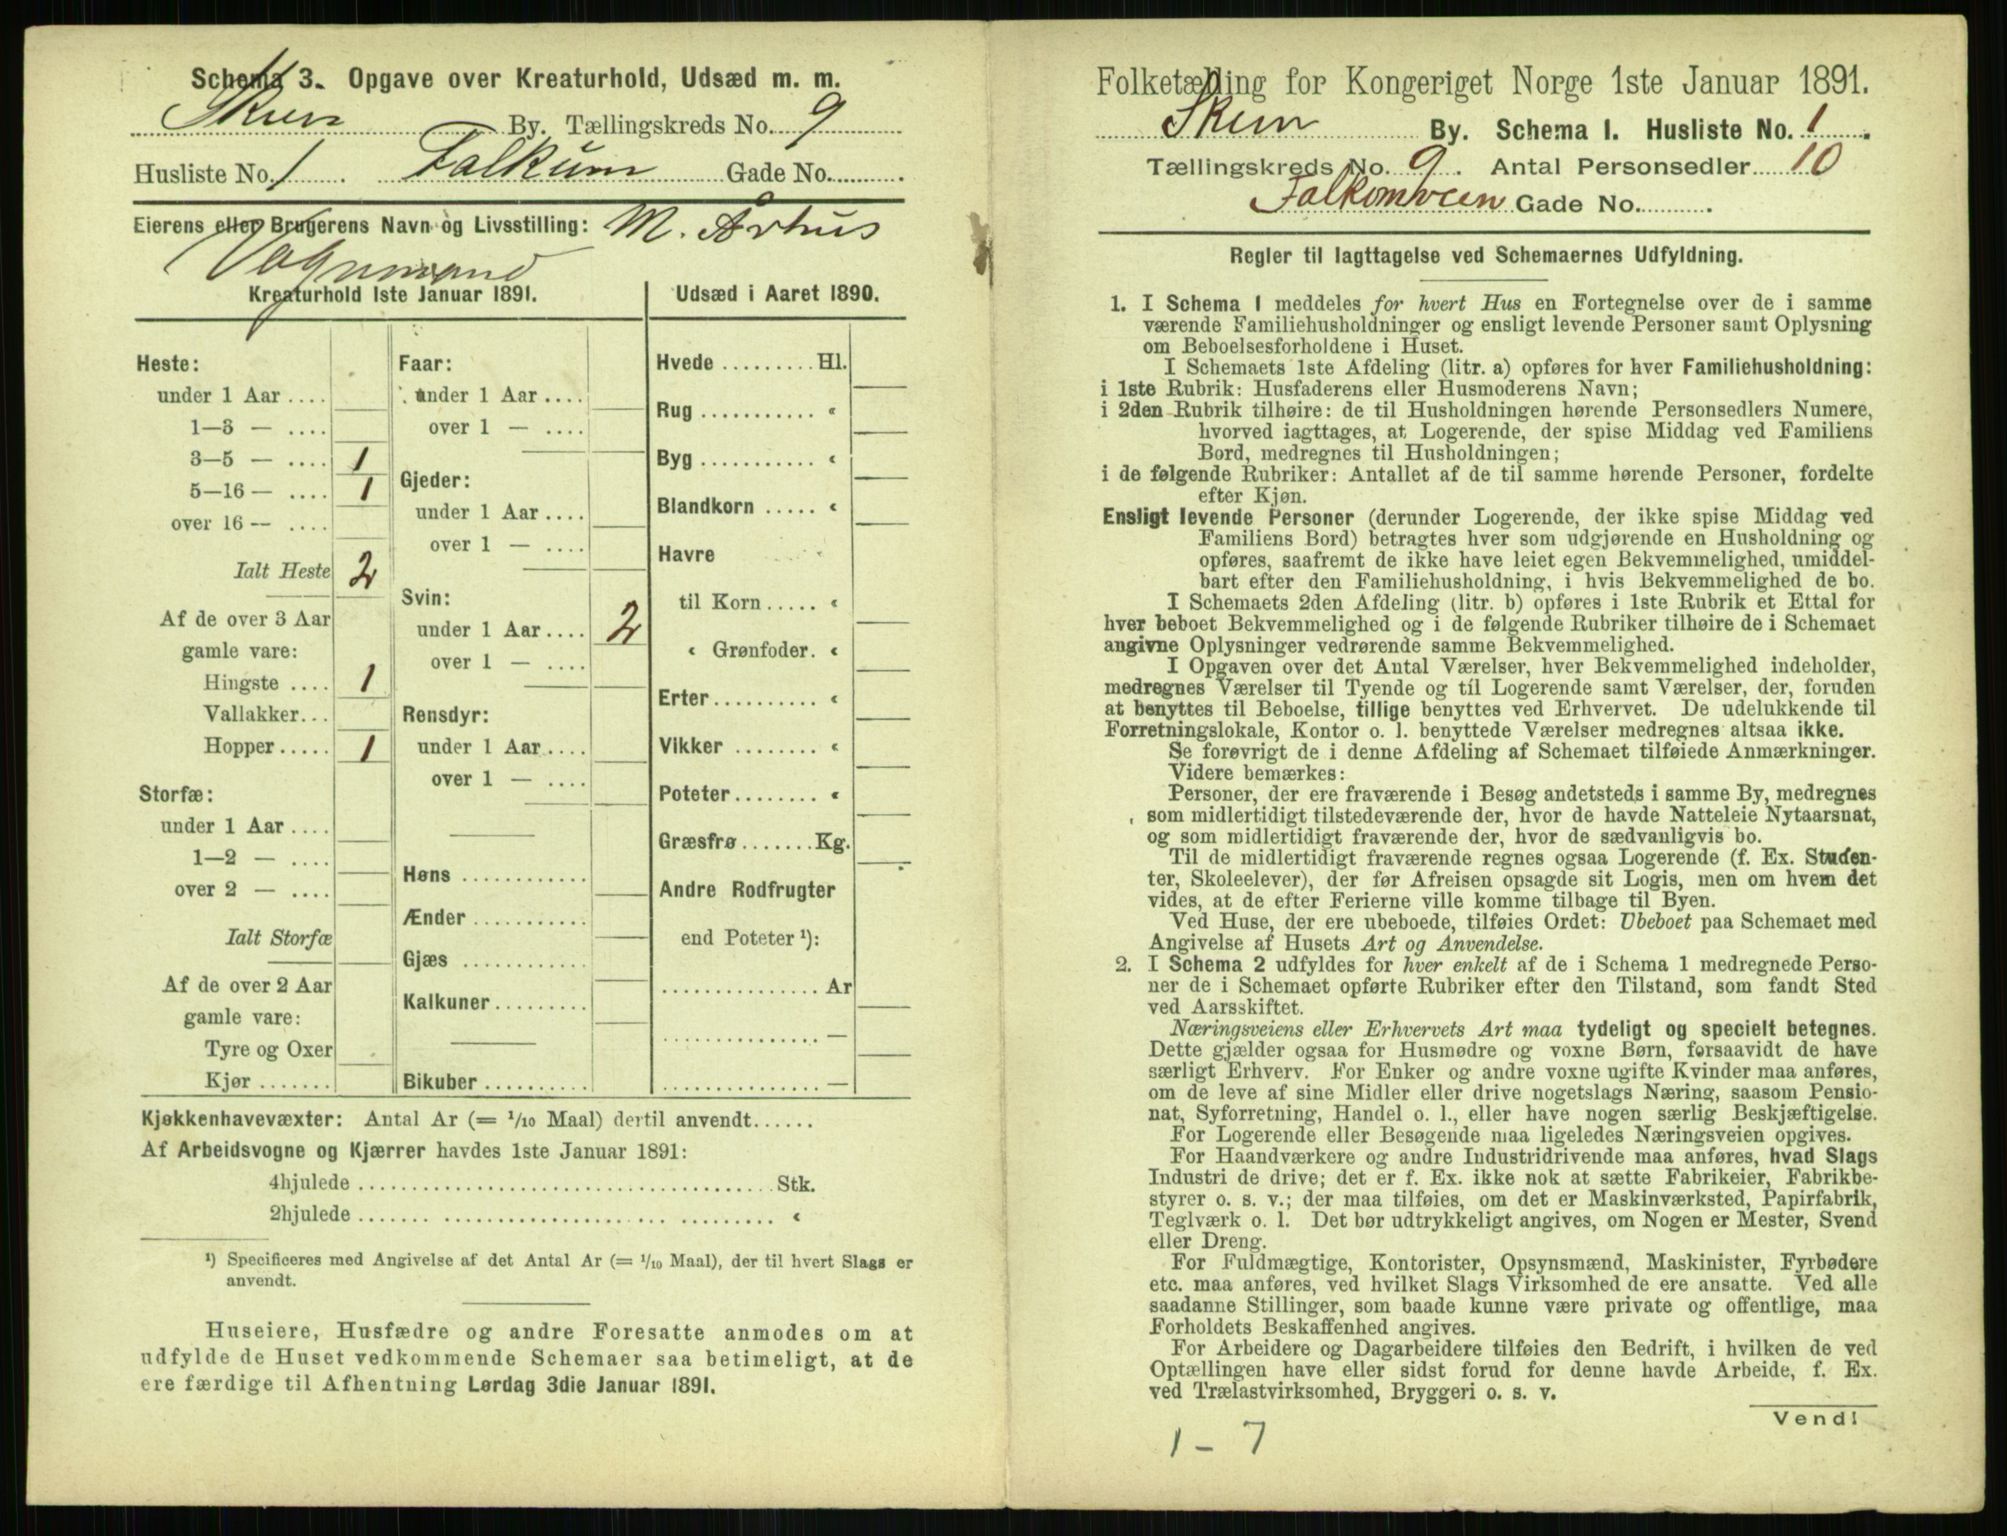 Schema 3. Opgave over Kreaturhold, Udsæd m. m.
Skien By. Tællingskreds No. 9
Husliste No. 1 Falkum Gade No.
Eierens eller Brugerens Navn og Livsstilling: M. Århus
Vognmand
Kreaturhold 1ste Januar 1891.
Heste:
under 1 Aar ....
1—3 — ....
3—5 — .... 1
5—16 — .... 1
over 16 — ....
Ialt Heste 2
Af de over 3 Aar
gamle vare:
Hingste .... 1
Vallakker...
Hopper..... 1
Storfæ:
under 1 Aar ....
1—2 — ....
over 2 — ....
Ialt Storfæ
Af de over 2 Aar
gamle vare:
Tyre og Oxer
Kjør.......
Faar:
under 1 Aar ....
over 1 — ....
Gjeder:
under 1 Aar ....
over 1 — ....
Svin:
under 1 Aar .... 2
over 1 — ....
Rensdyr:
under 1 Aar ....
over 1 — ....
Høns ............
Ænder ...........
Gjæs ............
Kalkuner.........
Bikuber ..........
Udsæd i Aaret 1890.
Hvede ......... Hl.
Rug ........... «
Byg ........... «
Blandkorn ..... «
Havre
til Korn..... «
« Grønfoder. «
Erter.......... «
Vikker ........ «
Poteter........ «
Græsfrø....... Kg.
Andre Rodfrugter
end Poteter ¹):
............... Ar
............... —
............... —
Kjøkkenhavevæxter: Antal Ar (= ¹/₁₀ Maal) dertil anvendt......
Af Arbeidsvogne og Kjærrer havdes 1ste Januar 1891:
4hjulede ....................................... Stk.
2hjulede ....................................... «
¹) Specificeres med Angivelse af det Antal Ar (= ¹/₁₀ Maal), der til hvert Slags er
anvendt.
Huseiere, Husfædre og andre Foresatte anmodes om at
udfylde de Huset vedkommende Schemaer saa betimeligt, at de
ere færdige til Afhentning Lørdag 3die Januar 1891.
Folketælling for Kongeriget Norge 1ste Januar 1891.
Skien By. Schema 1. Husliste No. 1
Tællingskreds No. 9. Antal Personsedler 10
Falkomveien Gade No.
Regler til Iagttagelse ved Schemaernes Udfyldning.
1. I Schema 1 meddeles for hvert Hus en Fortegnelse over de i samme
værende Familiehusholdninger og ensligt levende Personer samt Oplysning
om Beboelsesforholdene i Huset.
I Schemaets 1ste Afdeling (litr. a) opføres for hver Familiehusholdning:
i 1ste Rubrik: Husfaderens eller Husmoderens Navn;
i 2den Rubrik tilhøire: de til Husholdningen hørende Personsedlers Numere,
hvorved iagttages, at Logerende, der spise Middag ved Familiens
Bord, medregnes til Husholdningen;
i de følgende Rubriker: Antallet af de til samme hørende Personer, fordelte
efter Kjøn.
Ensligt levende Personer (derunder Logerende, der ikke spise Middag ved
Familiens Bord) betragtes hver som udgjørende en Husholdning og
opføres, saafremt de ikke have leiet egen Bekvemmelighed, umiddel-
bart efter den Familiehusholdning, i hvis Bekvemmelighed de bo.
I Schemaets 2den Afdeling (litr. b) opføres i 1ste Rubrik et Ettal for
hver beboet Bekvemmelighed og i de følgende Rubriker tilhøire de i Schemaet
angivne Oplysninger vedrørende samme Bekvemmelighed.
I Opgaven over det Antal Værelser, hver Bekvemmelighed indeholder,
medregnes Værelser til Tyende og til Logerende samt Værelser, der, foruden
at benyttes til Beboelse, tillige benyttes ved Erhvervet. De udelukkende til
Forretningslokale, Kontor o. l. benyttede Værelser medregnes altsaa ikke.
Se forøvrigt de i denne Afdeling af Schemaet tilføiede Anmærkninger.
Videre bemærkes:
Personer, der ere fraværende i Besøg andetsteds i samme By, medregnes
som midlertidigt tilstedeværende der, hvor de havde Natteleie Nytaarsnat,
og som midlertidigt fraværende der, hvor de sædvanligvis bo.
Til de midlertidigt fraværende regnes ogsaa Logerende (f. Ex. Studen-
ter, Skoleelever), der før Afreisen opsagde sit Logis, men om hvem det
vides, at de efter Ferierne ville komme tilbage til Byen.
Ved Huse, der ere ubeboede, tilføies Ordet: Ubeboet paa Schemaet med
Angivelse af Husets Art og Anvendelse.
2. I Schema 2 udfyldes for hver enkelt af de i Schema 1 medregnede Perso-
ner de i Schemaet opførte Rubriker efter den Tilstand, som fandt Sted
ved Aarsskiftet.
Næringsveiens eller Erhvervets Art maa tydeligt og specielt betegnes.
Dette gjælder ogsaa for Husmødre og voxne Børn, forsaavidt de have
særligt Erhverv. For Enker og andre voxne ugifte Kvinder maa anføres,
om de leve af sine Midler eller drive nogetslags Næring, saasom Pensio-
nat, Syforretning, Handel o. l., eller have nogen særlig Beskjæftigelse.
For Logerende eller Besøgende maa ligeledes Næringsveien opgives.
For Haandværkere og andre Industridrivende maa anføres, hvad Slags
Industri de drive; det er f. Ex. ikke nok at sætte Fabrikeier, Fabrikbe-
styrer o. s. v.; der maa tilføies, om det er Maskinværksted, Papirfabrik,
Teglværk o. l. Det bør udtrykkeligt angives, om Nogen er Mester, Svend
eller Dreng.
For Fuldmægtige, Kontorister, Opsynsmænd, Maskinister, Fyrbødere
etc. maa anføres, ved hvilket Slags Virksomhed de ere ansatte. Ved alle
saadanne Stillinger, som baade kunne være private og offentlige, maa
Forholdets Beskaffenhed angives.
For Arbeidere og Dagarbeidere tilføies den Bedrift, i hvilken de ved
Optællingen have eller sidst forud for denne havde Arbeide, f. Ex.
ved Trælastvirksomhed, Bryggeri o. s. v.
Vend!
1 - 7